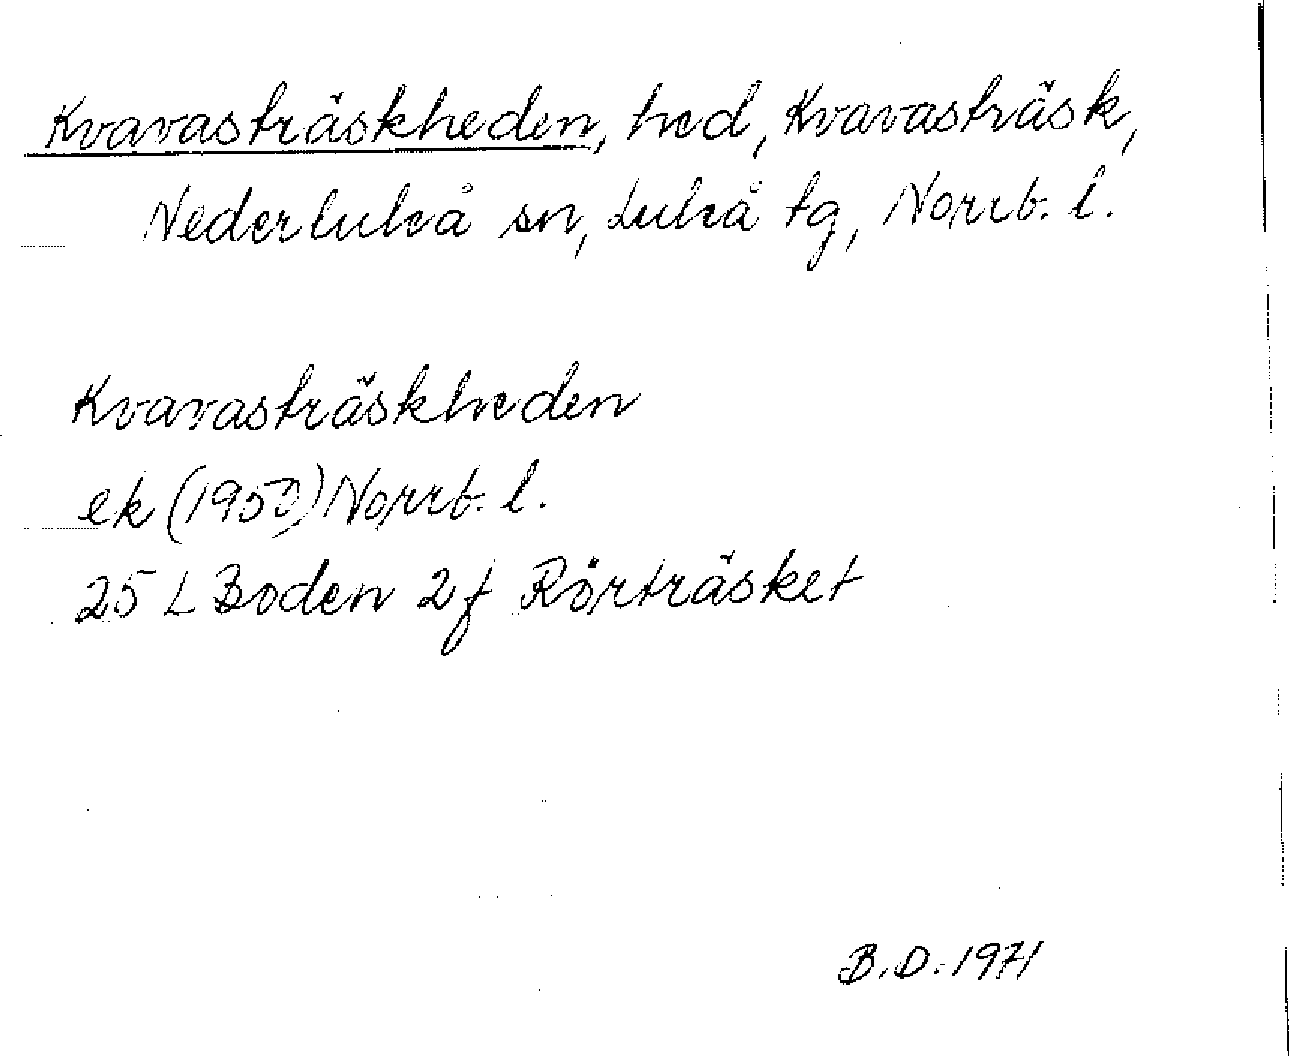 Kvavasträskheden, hed, Kvavasträsk,
Nederluleå sn, Luleå tg, Norrb. l.
Kvavasträskheden
ek (1950) Norrb. l.
25 L Boden 2 f Rörträsket
B.D. 1971